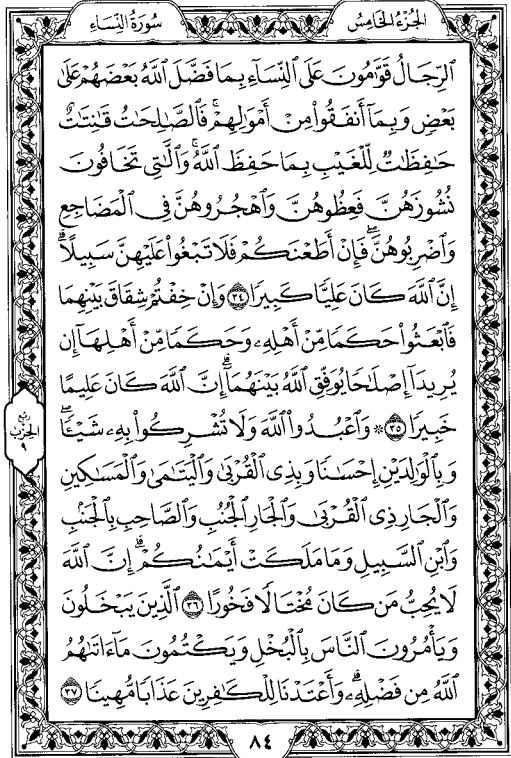 الجزء الخامس
سورة النساء
ٱلرِّجَالُ قَوَّٰمُونَ عَلَى ٱلنِّسَآءِ بِمَا فَضَّلَ ٱللَّهُ بَعْضَهُمْ عَلَىٰ
بَعْضٍ وَبِمَآ أَنفَقُوا۟ مِنْ أَمْوَٰلِهِمْ ۚ فَٱلصَّٰلِحَٰتُ قَٰنِتَٰتٌ
حَٰفِظَٰتٌ لِّلْغَيْبِ بِمَا حَفِظَ ٱللَّهُ ۚ وَٱلَّٰتِى تَخَافُونَ
نُشُوزَهُنَّ فَعِظُوهُنَّ وَٱهْجُرُوهُنَّ فِى ٱلْمَضَاجِعِ
وَٱضْرِبُوهُنَّ ۖ فَإِنْ أَطَعْنَكُمْ فَلَا تَبْغُوا۟ عَلَيْهِنَّ سَبِيلًا ۗ
إِنَّ ٱللَّهَ كَانَ عَلِيًّا كَبِيرًا ٣٤ وَإِنْ خِفْتُمْ شِقَاقَ بَيْنِهِمَا
فَٱبْعَثُوا۟ حَكَمًا مِّنْ أَهْلِهِۦ وَحَكَمًا مِّنْ أَهْلِهَآ إِن
يُرِيدَآ إِصْلَٰحًا يُوَفِّقِ ٱللَّهُ بَيْنَهُمَآ ۗ إِنَّ ٱللَّهَ كَانَ عَلِيمًا
خَبِيرًا ٣٥ ۞ وَٱعْبُدُوا۟ ٱللَّهَ وَلَا تُشْرِكُوا۟ بِهِۦ شَيْـًٔا ۖ
ربع
الحزب
٩
وَبِٱلْوَٰلِدَيْنِ إِحْسَٰنًا وَبِذِى ٱلْقُرْبَىٰ وَٱلْيَتَٰمَىٰ وَٱلْمَسَٰكِينِ
وَٱلْجَارِ ذِى ٱلْقُرْبَىٰ وَٱلْجَارِ ٱلْجُنُبِ وَٱلصَّاحِبِ بِٱلْجَنۢبِ
وَٱبْنِ ٱلسَّبِيلِ وَمَا مَلَكَتْ أَيْمَٰنُكُمْ ۗ إِنَّ ٱللَّهَ
لَا يُحِبُّ مَن كَانَ مُخْتَالًا فَخُورًا ٣٦ ٱلَّذِينَ يَبْخَلُونَ
وَيَأْمُرُونَ ٱلنَّاسَ بِٱلْبُخْلِ وَيَكْتُمُونَ مَآ ءَاتَىٰهُمُ
ٱللَّهُ مِن فَضْلِهِۦ ۗ وَأَعْتَدْنَا لِلْكَٰفِرِينَ عَذَابًا مُّهِينًا ٣٧
٨٤